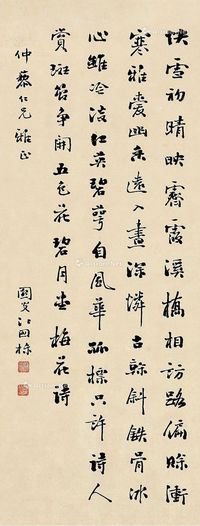 快雪初晴映霽霞溪橋相訪路偏賒衝
寒雅愛幽香遠入畫深憐古榦斜鐵骨冰
心雖冷淡紅英碧萼自風華孤標只許詩人
賞斑管爭開五色花 碧月堂梅花詩
仲藜仁兄雅正
江國棟